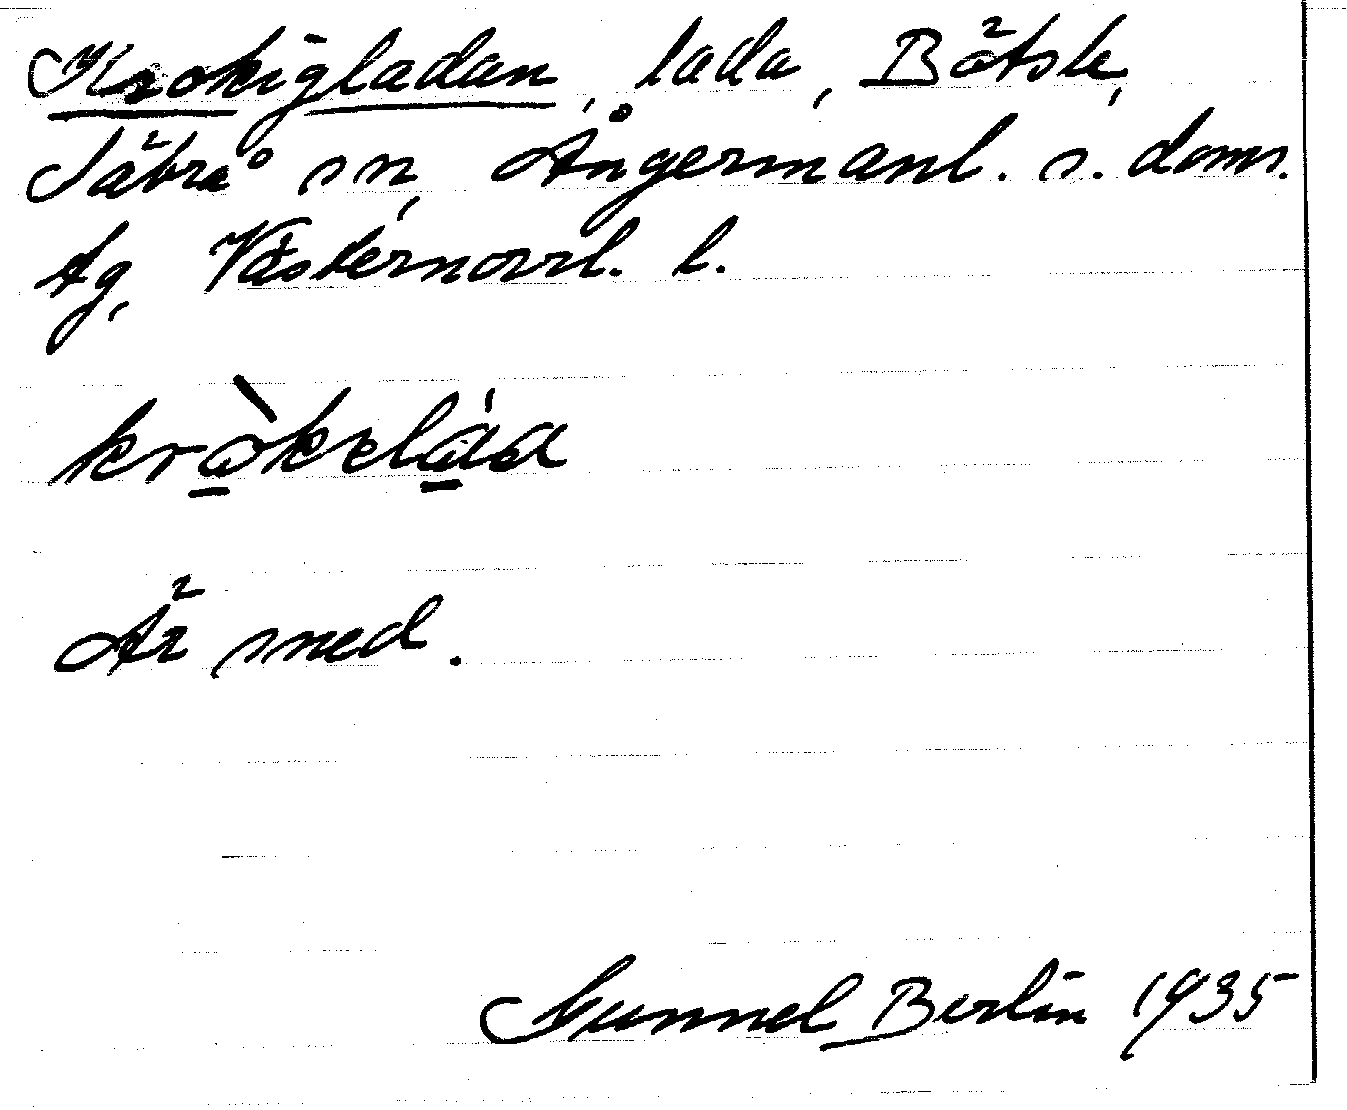 Krokigladan, lada, Bätsle,
Säbrå sn, Ångermanl. s. doms.
tg, Västernorrl. l.
krò̱kelá̱a
Är sned.
Gunnel Berlin 1935